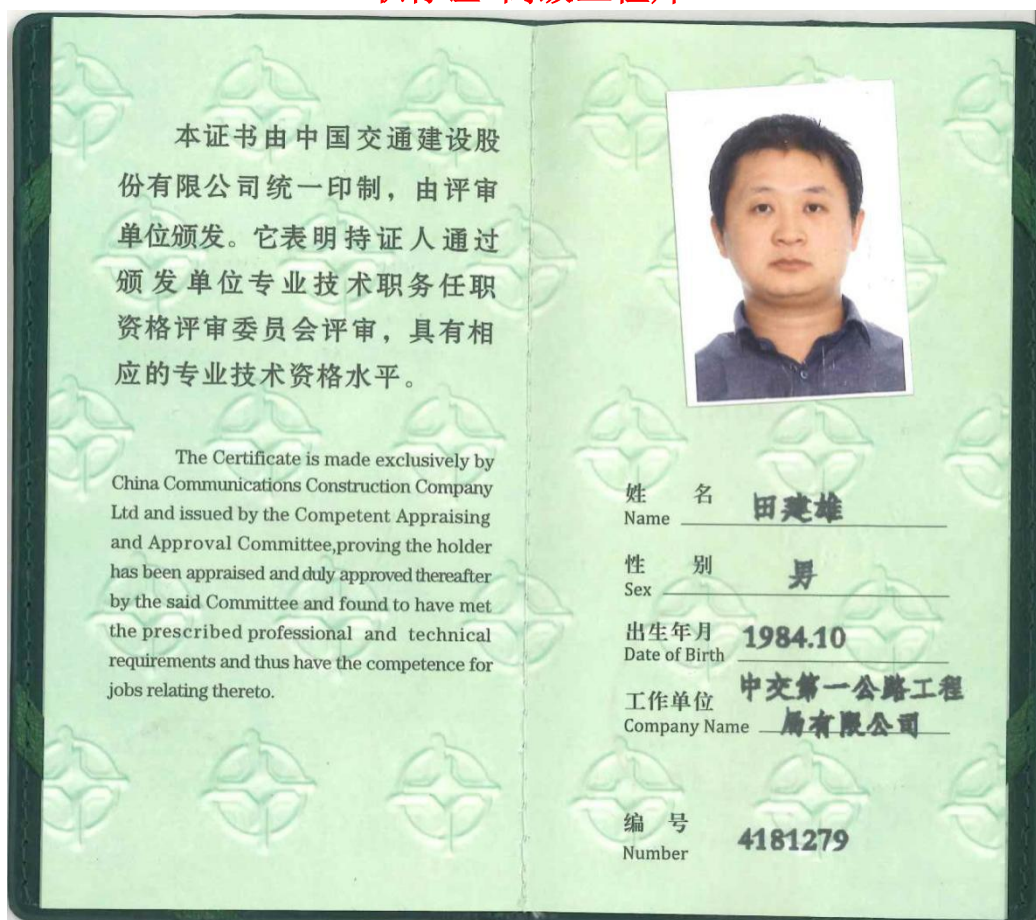 本证书由中国交通建设股
份有限公司统一印制，由评审
单位颁发。它表明持证人通过
颁发单位专业技术职务任职
资格评审委员会评审，具有相
应的专业技术资格水平。
The Certificate is made exclusively by
China Communications Construction Company
Ltd and issued by the Competent Appraising
and Approval Committee,proving the holder
has been appraised and duly approved thereafter
by the said Committee and found to have met
the prescribed professional and technical
requirements and thus have the competence for
jobs relating thereto.
姓 名 田建雄
Name
性 别 男
Sex
出生年月 1984.10
Date of Birth
工作单位 中交第一公路工程
Company Name 局有限公司
编 号 4181279
Number